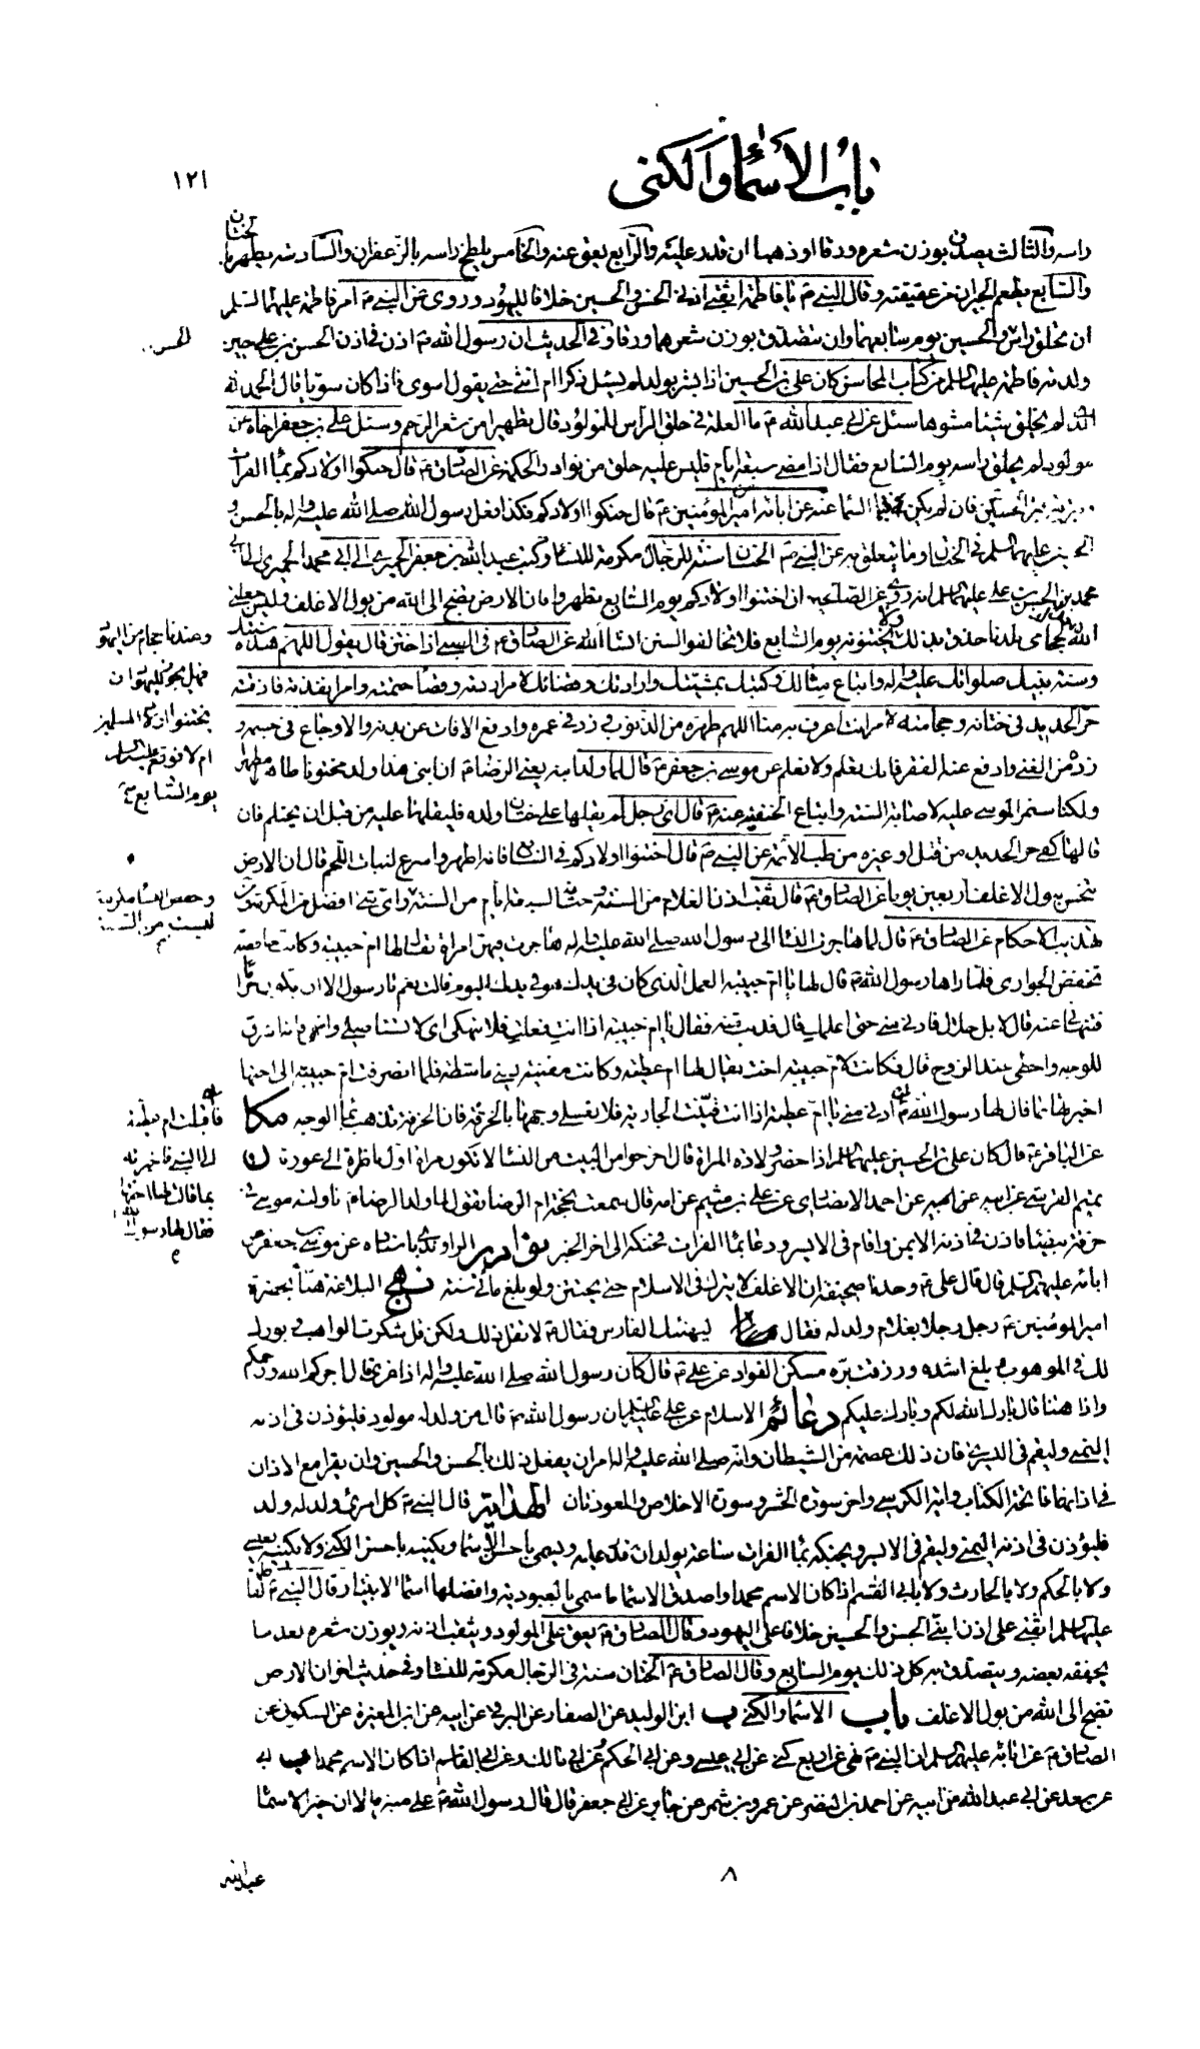 باب الأسماء والكنى
١٢١
راسه والثالث يصدق بوزن شعره ورقا او ذهبا ان قدر عليه والرابع يعق عنه والخامس يلطخ راسه بالزعفران والسادسه يطهر بالختان
والسابع يطعم الجيران من عقيقته وقال النبي ص يا فاطمة اثقبي اذني الحسن والحسين خلافا لليهود وروى عن النبي ص امر فاطمة عليها السلم
ان يحلق راس والحسين يوم سابعهما وان يتصدق بوزن شعرهما ورقا وفي الحديث ان رسول الله ص اذن في اذن الحسن بن علي حين
الحسن
ولدته فاطمة عليها السلم من كتاب المحاسن كان علي بن الحسين اذا بشر بولد لم يسئل ذكر ام انثى حتى يقول اسوي فاذا كان سويا قال الحمد لله
الذي لم يخلق شيئا مشوها سئل عن ابي عبد الله ع ما العلة في حلق الراس للمولود قال تطهيرا من شعر الرحم وسئل علي بن جعفر اخاه عن
مولود لم يحلق راسه يوم السابع فقال اذا مضى سبعة ايام فليس عليه حلق من نوادر الحكمة عن الصادق ع قال حنكوا اولادكم بماء الفرات
فان لم يكن فبماء السماء عنه عن ابائه امير المؤمنين ع قال حنكوا اولادكم فكذا فعل رسول الله صلى الله عليه واله بالحسن و
الحسين عليهما السلم في الختان وما يتعلق به عن النبي ص الختان سنة للرجال مكرمة للنساء وكتب عبد الله بن جعفر الحميري الى ابي محمد
محمد بن الحسن بن علي عليهما السلم انه روي عن الصالحين ان اختنوا اولادكم يوم السابع يطهروا وان الارض تضج الى الله من بول الاغلف وليس جعلني
الله فداك لحجامي بلدنا حذق بذلك ولا يختنونه يوم السابع فلا تخالفوا السنن انشاء الله عن الصادق ع في الصبي اذا ختن قال يقول اللهم هذه سنتك
وعندنا حجام من اليهود
فهل يجوز لليهود ان
يختنوا اولاد المسلمين
ام لا فوقع عليه السلم
يوم السابع
وسنة نبيك صلواتك عليه واله واتباع مثالك وكتبك بمشيتك وارادتك وقضائك لامر اردته وقضاء حتمته وامر انفذته فاذقته
حر الحديد في ختانه وحجامته لامر انت اعرف به منا اللهم طهره من الذنوب وزد في عمره وادفع الافات عن بدنه والاوجاع في جسمه و
زده من الغنى وادفع عنه الفقر فانك تعلم ولا نعلم عن موسى بن جعفر ع قال لما ولد ابنه يعني الرضا ع ان ابني هذا ولد مختونا طاهرا مطهرا
ولكنا سنمر الموسى عليه لاصابة السنة واتباع الحنفية عنه ع قال اي رجل لم يقلها على ختان ولده فليقلها عليه من قبل ان يحتلم فان
قالها كفي حر الحديد من قتل او غيره من طب الائمة عن النبي ص قال اختنوا اولادكم في السابع فانه اطهر واسرع لنبات اللحم قال ان الارض
تنجس ببول الاغلف اربعين يوما عن الصادق ع قال ثقب اذن الغلام من السنة وختانه لسبعة ايام من السنة واي شيء افضل من المكرمة
وخفض النساء مكرمة
ليست من السنة
تهذيب الاحكام عن الصادق ع قال لما هاجرن النساء الى رسول الله صلى الله عليه واله هاجرت فيهن امراة يقال لها ام حبيبة وكانت خافضة
تخفض الجواري فلما راها رسول الله ص قال لها يا ام حبيبة العمل الذي كان في يدك هو في يدك اليوم قالت نعم يا رسول الا ان يكون حراما
فتنهاني عنه قال لا بل حلال فادني مني حتى اعلمك قال فدنت منه فقال يا ام حبيبة اذا انت فعلت فلا تنهكي اي لا تستاصلي واشمي فانه اشرق
للوجه واحظى عند الزوج قال فكانت لام حبيبة اخت يقال لها ام عطية وكانت مقنية يعني ماشطة فلما انصرفت ام حبيبة الى اختها
اخبرتها بما قال لها رسول الله ص ادني مني يا ام عطية اذا انت قينت الجارية فلا تغسلي وجهها بالخرقة فان الخرقة تذهب بماء الوجه مكا
فاقبلت ام عطية
الى النبي فاخبرته
بما قالت لها اختها
فقال لها رسول الله
عن الباقر ع قال كان علي بن الحسين عليهما السلم اذا حضر ولادة المراة قال اخرجوا من البيت من النساء لا تكون مراة اول ناظرة الى عورة ن
عن احمد الانصاري عن علي بن ميثم عن امه قال سمعت نجمة ام الرضا تقول لما ولد الرضا ع ناولته موسى في
خرقة بيضاء فاذن في اذنه الايمن واقام في الايسر ودعا بماء الفرات فحنكه الى اخر الخبر نوادر الراوندي باسناده عن موسى بن جعفر عن
ابائه عليهم السلم قال قال علي ع وجدنا صحيفة ان الاغلف لا يترك في الاسلام حتى يختتن ولو بلغ مائة سنة نهج البلاغة هنأ بحضرة
امير المؤمنين ع رجل رجلا بغلام ولد له فقال ليهنئك الفارس فقال ع لا تقل ذلك ولكن قل شكرت الواهب وبورك
لك في الموهوب وبلغ اشده ورزقت بره مسكن الفواد عن علي ع قال كان رسول الله صلى الله عليه واله اذا عزى قال اجركم الله ورحمكم
واذا هنأ قال بارك الله لكم وبارك عليكم دعائم الاسلام عن علي عليه السلم ان رسول الله ص قال من ولد له مولود فليؤذن في اذنه
اليمنى وليقم في اليسرى فان ذلك عصمة من الشيطان وانه صلى الله عليه واله امر ان يفعل ذلك بالحسن والحسين وان يقرا مع الاذان
في اذانهما فاتحة الكتاب واية الكرسي واخر سورة الحشر وسورة الاخلاص والمعوذتان الهداية قال النبي ص كل امرئ ولد له ولد
فليؤذن في اذنه اليمنى وليقم في الايسر ويحنكه بماء الفرات ساعة يولد ان قدر عليه ويسمي باحسن الاسماء ويكنيه باحسن الكنى ولا يكنى بعيسى
ولا بالحكم ولا بالحارث ولا بابي القسم اذا كان الاسم محمدا واصدق الاسماء ما سمي بالعبودية وافضلها اسماء الانبياء وقال النبي ص لفاطمة
عليها السلم اثقبي على اذن ابني الحسن والحسين خلافا على اليهود وقال الصادق ع يعق على المولود ويثقب اذنه ويوزن شعره بعد ما
يجففه بفضة ويتصدق به كل ذلك يوم السابع وقال الصادق ع الختان سنة في الرجال مكرمة للنساء وفي حديث اخر ان الارض
تضج الى الله من بول الاغلف باب الاسماء والكنى ب ابن الوليد عن الصفار عن البرقي عن ابيه عن ابن المغيرة عن السكوني عن
الصادق ع عن ابائه عليهم السلم ان النبي ص نهى عن اربع كنى عن ابي عيسى وعن ابي الحكم وعن ابي مالك وعن ابي القاسم اذا كان الاسم محمدا ب ابي
عن سعد عن ابي عبد الله عن ابيه عن احمد بن النضر عن عمرو بن شمر عن جابر عن ابي جعفر قال قال رسول الله ص على منبره الا ان خير الاسماء
٨
عبد الله